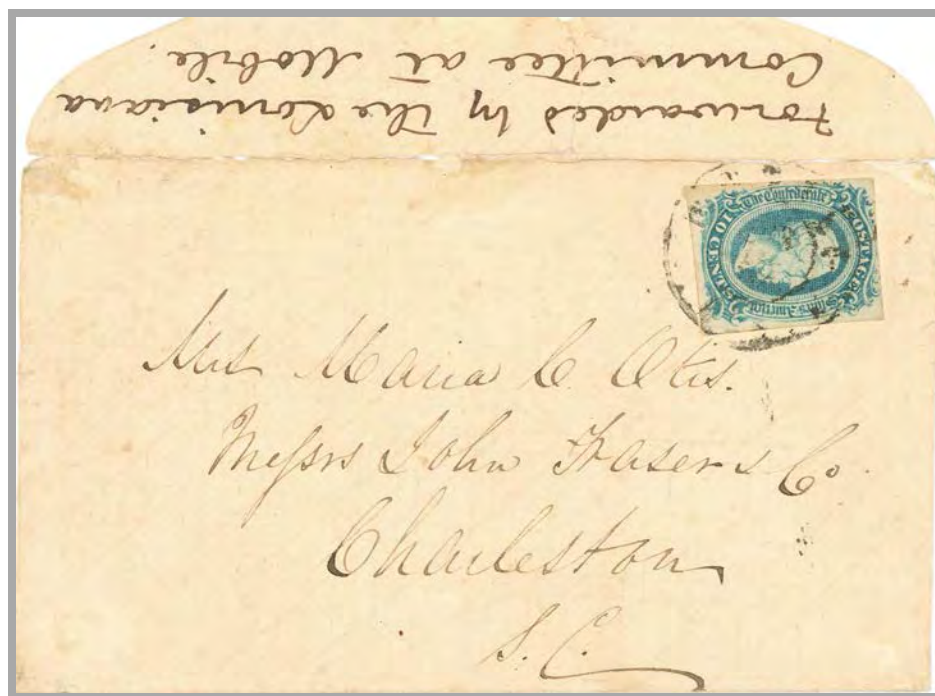 Forwarded by the Louisiana
Committee at Mobile.
The Confederate
States America
POSTAGE
TEN CENTS
Mrs Maria C. Otis.
Messrs John Fraser & Co
Charleston
S. C.